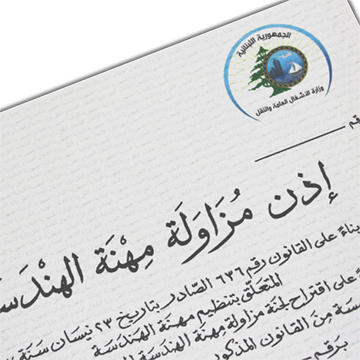 الجمهورية اللبنانية
وزارة الأشغال العامة والنقل
رقم
إذن مزاولة مهنة الهندسة
بناءً على القانون رقم ٦٣٦ الصادر بتاريخ ٢٣ نيسان سنة
المتعلق بتنظيم مهنة الهندسة
على اقتراح لجنة مزاولة مهنة الهندسة
من القانون المذكور